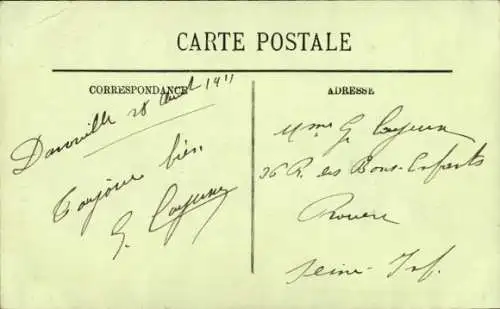 CARTE POSTALE
CORRESPONDANCE
ADRESSE
28 1911
Toujours bien
G. Cayeux
Mme G. Cayeux
36 R. des Bons-Enfants
Rouen
Seine-Inf.